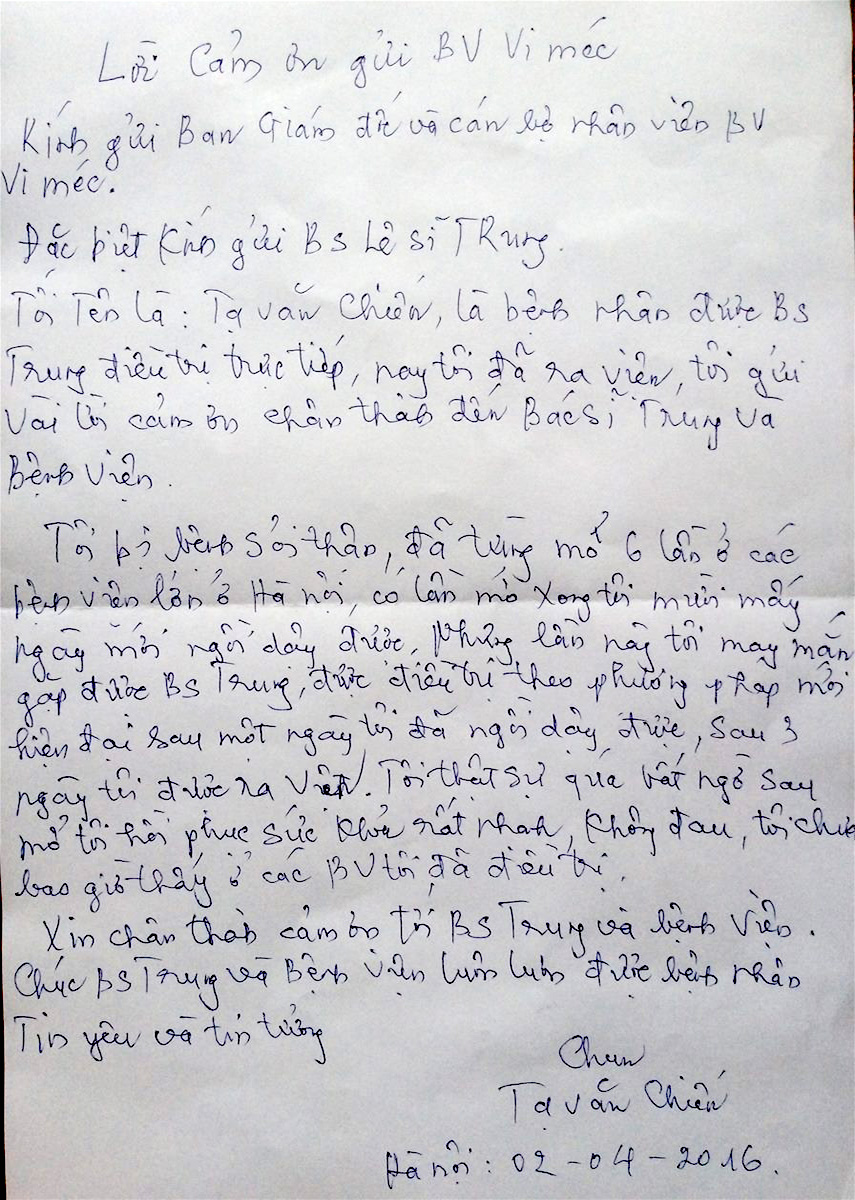 Lời Cảm ơn gửi BV Vi méc
Kính gửi Ban Giám đốc và cán bộ nhân viên BV
Vi méc.
Đặc biệt Kính gửi BS Lê Sĩ TRung.
Tôi Tên là : Tạ văn Chiến, là bệnh nhân được BS
Trung điều trị trực tiếp, nay tôi đã ra viện, tôi gửi
vài lời cảm ơn chân thành đến Bác sĩ Trung và
Bệnh viện.
Tôi bị bệnh sỏi thận, đã từng mổ 6 lần ở các
bệnh viện lớn ở Hà nội, có lần mổ xong tôi mười mấy
ngày mới ngồi dậy được. Nhưng lần này tôi may mắn
gặp được BS Trung, được điều trị theo phương pháp mới
hiện đại sau một ngày tôi đã ngồi dậy được, sau 3
ngày tôi được ra viện. Tôi thật sự quá bất ngờ sau
mổ tôi hồi phục sức khỏe rất nhanh, không đau, tôi chưa
bao giờ thấy ở các BV tôi đã điều trị.
Xin chân thành cảm ơn tới BS Trung và bệnh viện.
Chúc BS Trung và Bệnh viện luôn luôn được bệnh nhân
Tin yêu và tin tưởng
Tạ văn Chiến
Hà nội : 02 - 04 - 2016.